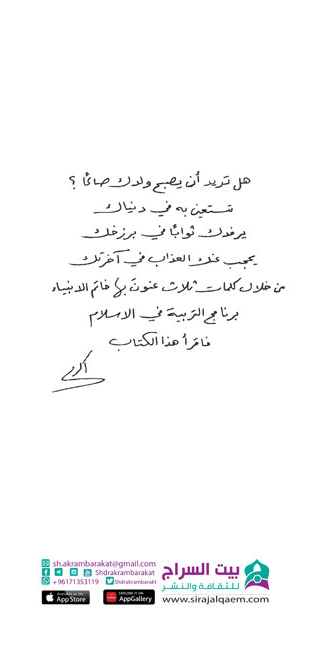 هل تريد أن يصبح ولدك صالحًا ؟
تستعين به في دنياك
يرفدك ثوابًا في برزخك
يحجب عنك العذاب في آخرتك
من خلال كلمات ثلاث عنون بها خاتم الانبياء
برنامج التربية في الاسلام
فاقرأ هذا الكتاب
اكرم
sh.akrambarakat@gmail.com
Shdrakrambarakat
+96171353119 Shdrakrambarakt
Available on the App Store
EXPLORE IT ON AppGallery
بيت السراج
للثقافة والنشر
www.sirajalqaem.com